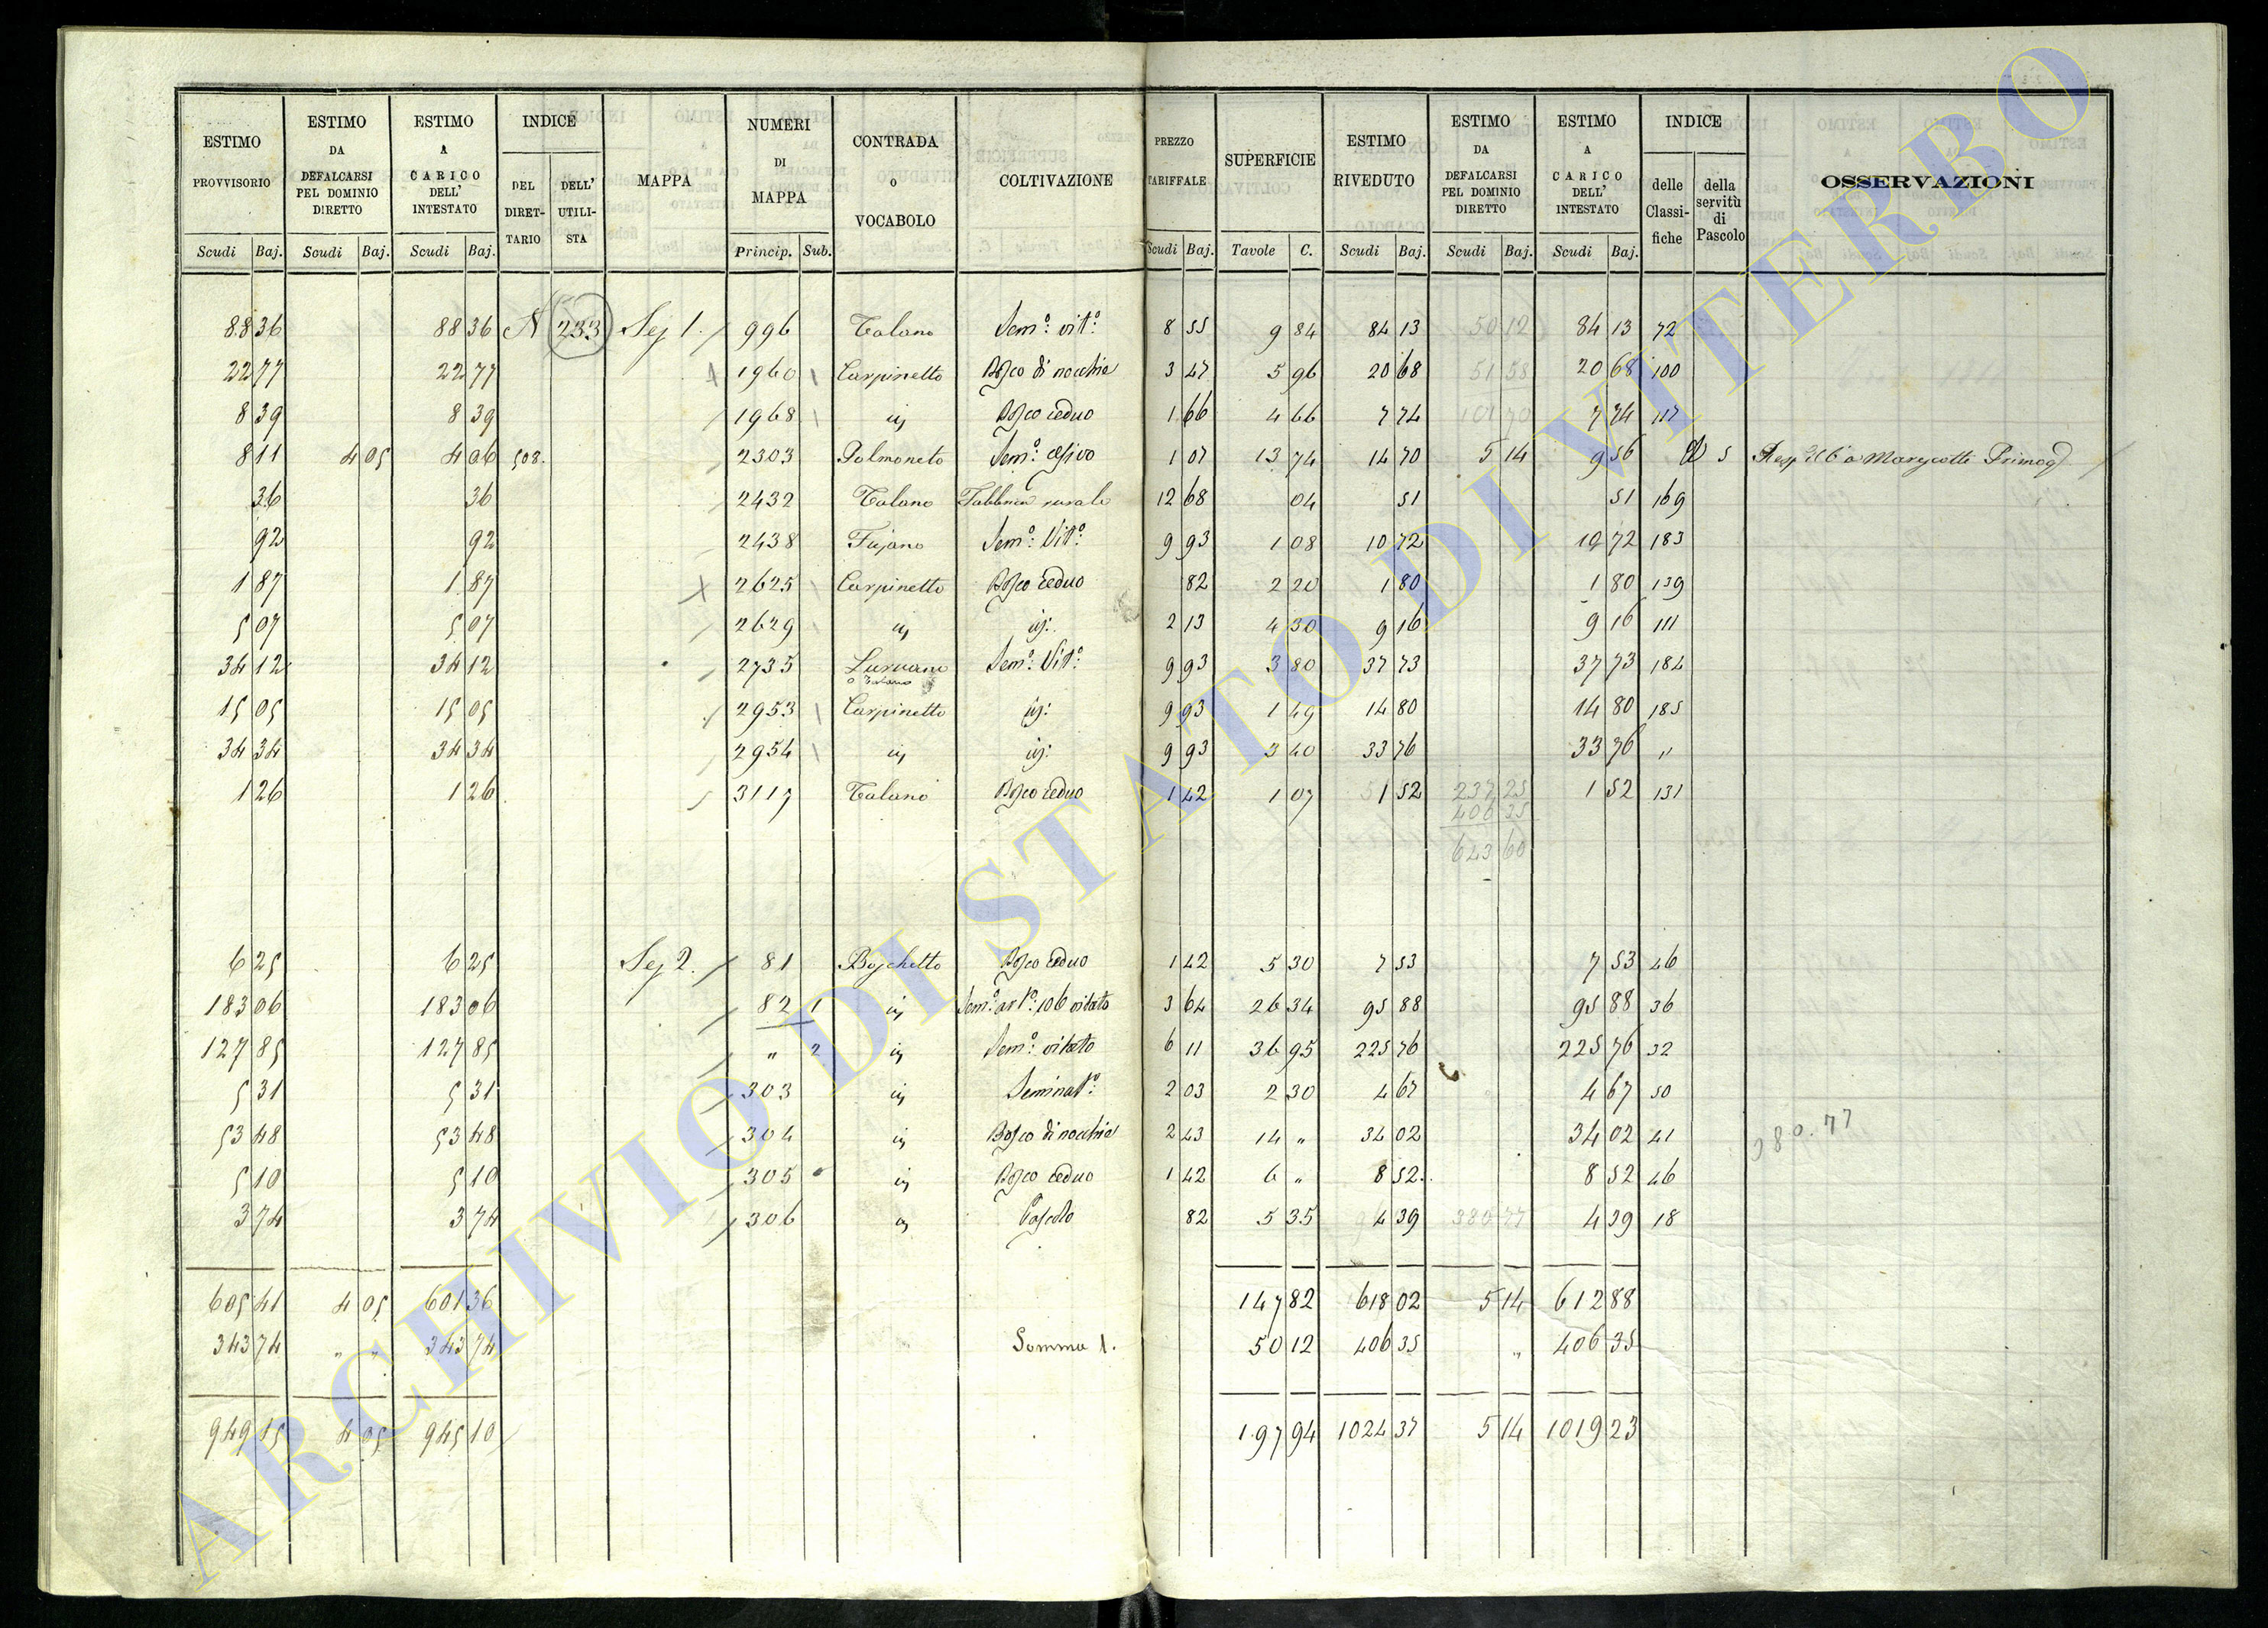 ESTIMO PROVVISORIO Scudi Baj. ESTIMO DA DEFALCARSI PEL DOMINIO DIRETTO Scudi Baj. ESTIMO A CARICO DELL' INTESTATO Scudi Baj. INDICE DEL DIRETTARIO DELL' UTILISTA MAPPA NUMERI DI MAPPA Princip. Sub. CONTRADA o VOCABOLO COLTIVAZIONE PREZZO TARIFFALE Scudi Baj. SUPERFICIE Tavole C. ESTIMO RIVEDUTO Scudi Baj. ESTIMO DA DEFALCARSI PEL DOMINIO DIRETTO Scudi Baj. ESTIMO A CARICO DELL' INTESTATO Scudi Baj. INDICE delle Classifiche della servitù di Pascolo OSSERVAZIONI
88 36 88 36 N 233 Sez 1. 996 Talano Sem.o vit.o 8 55 9 84 84 13 50 12 84 13 72
22 77 22 77 1960 Carpinetto Bosco di nocchie 3 47 5 96 20 68 51 58 20 68 100
8 39 8 39 1968 Bosco ceduo 1 66 4 66 7 74 7 74 117
8 11 4 05 4 06 508. 2303 Palmoneto Sem.o 1 07 13 74 14 70 5 14 9 56 5 Marescotti Primog
36 36 2432 Talano Fabbrica rurale 12 68 04 51 51 169
92 92 2438 Sem.o Vit.o 9 93 1 08 10 72 10 72 183
1 87 1 87 2625 Carpinetto Bosco ceduo 82 2 20 1 80 1 80 139
5 07 5 07 2629 2 13 4 30 9 16 9 16 111
34 12 34 12 2735 Sem.o Vit.o 9 93 3 80 37 73 37 73 184
15 05 15 05 2953 Carpinetto 9 93 1 49 14 80 14 80 185
34 34 34 34 2954 9 93 3 40 33 76 33 76 "
1 26 1 26 3117 Talano Bosco ceduo 1 42 1 07 1 52 237 25 1 52 131
406 35
643 60
6 25 6 25 Sez 2. 81 Boschetto Bosco ceduo 1 42 5 30 7 53 7 53 46
183 06 183 06 82 1 vitato 3 64 26 34 95 88 95 88 36
127 85 127 85 " 2 Sem.o vitato 6 11 36 95 225 76 225 76 32
5 31 5 31 303 Seminat.o 2 03 2 30 4 67 4 67 50
53 48 53 48 304 Bosco di nocchie 2 43 14 " 34 02 34 02 41 380.77
5 10 5 10 305 Bosco ceduo 1 42 6 " 8 52 8 52 46
3 74 3 74 306 Pascolo 82 5 35 4 39 380 77 4 39 18
605 41 4 05 601 36 147 82 618 02 5 14 612 88
343 74 " " 343 74 Somma 1. 50 12 406 35 " 406 35
949 15 4 05 945 10 197 94 1024 37 5 14 1019 23
ARCHIVIO DI STATO DI VITERBO